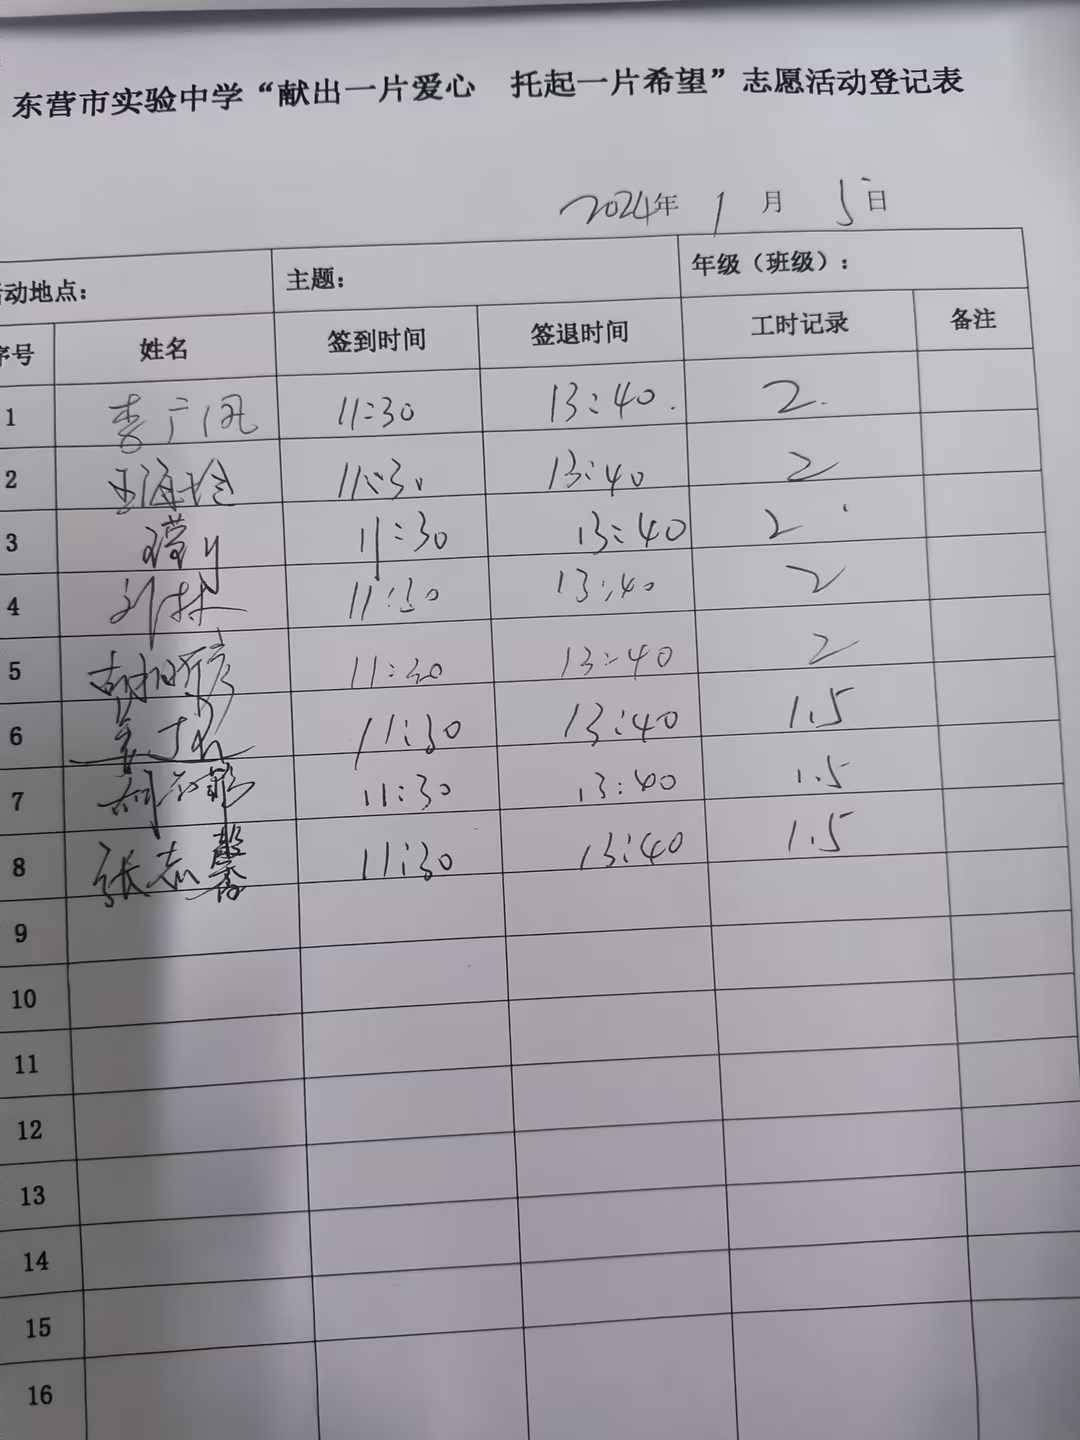 东营市实验中学“献出一片爱心 托起一片希望”志愿活动登记表
2024年 1月 5日
动地点： 主题： 年级（班级）：
序号 姓名 签到时间 签退时间 工时记录 备注
1 李广凤 11:30 13:40. 2.
2 王海玲 11:30 13:40 2
3 11:30 13:40 2
4 刘林 11:30 13:40 2
5 11:30 13:40 2
6 11:30 13:40 1.5
7 11:30 13:40 1.5
8 张志馨 11:30 13:40 1.5
9
10
11
12
13
14
15
16